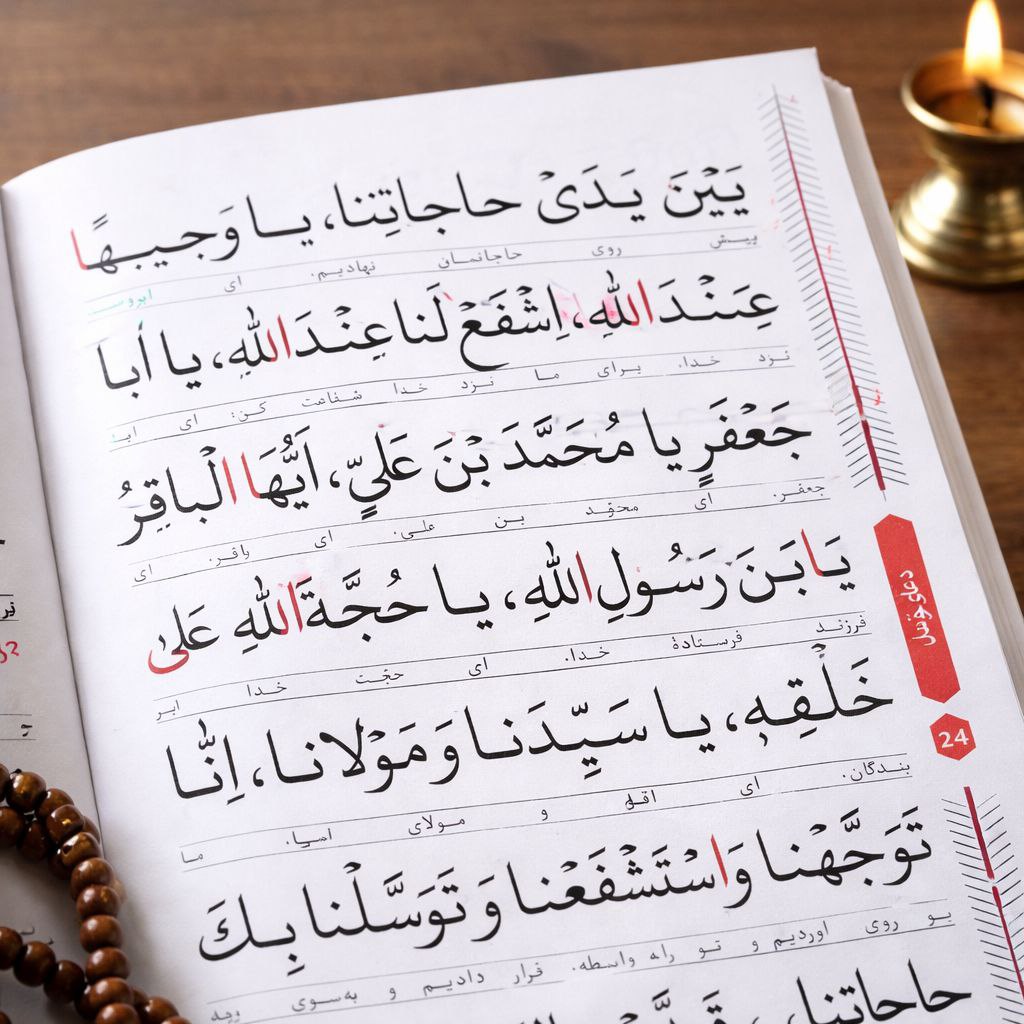 بَيْنَ يَدَىْ حاجاتِنا، يا وَجيهًا
پیش روی حاجاتمان نهادیم. ای
عِنْدَ اللهِ، اِشْفَعْ لَنا عِنْدَ اللهِ، يا أبا
نزد خدا. برای ما نزد خدا شفاعت کن: ای
جَعْفَرٍ يا مُحَمَّدَ بْنَ عَلِيٍّ، اَيُّهَا الْباقِرُ
جعفر. ای محمّد بن علی. ای باقر. ای
يَا بَنَ رَسُولِ اللهِ، يا حُجَّةَ اللهِ عَلى
فرزند فرستادهٔ خدا. ای حجّت خدا
خَلْقِهِ، يا سَيِّدَنا وَمَوْلانا، اِنّا
بندگان. ای و مولای ما
تَوَجَّهْنا وَاسْتَشْفَعْنا وَ تَوَسَّلْنا بِكَ
روی اوردیم و تو واسطه. قرار دادیم و به‌سوی
حاجاتنا
24